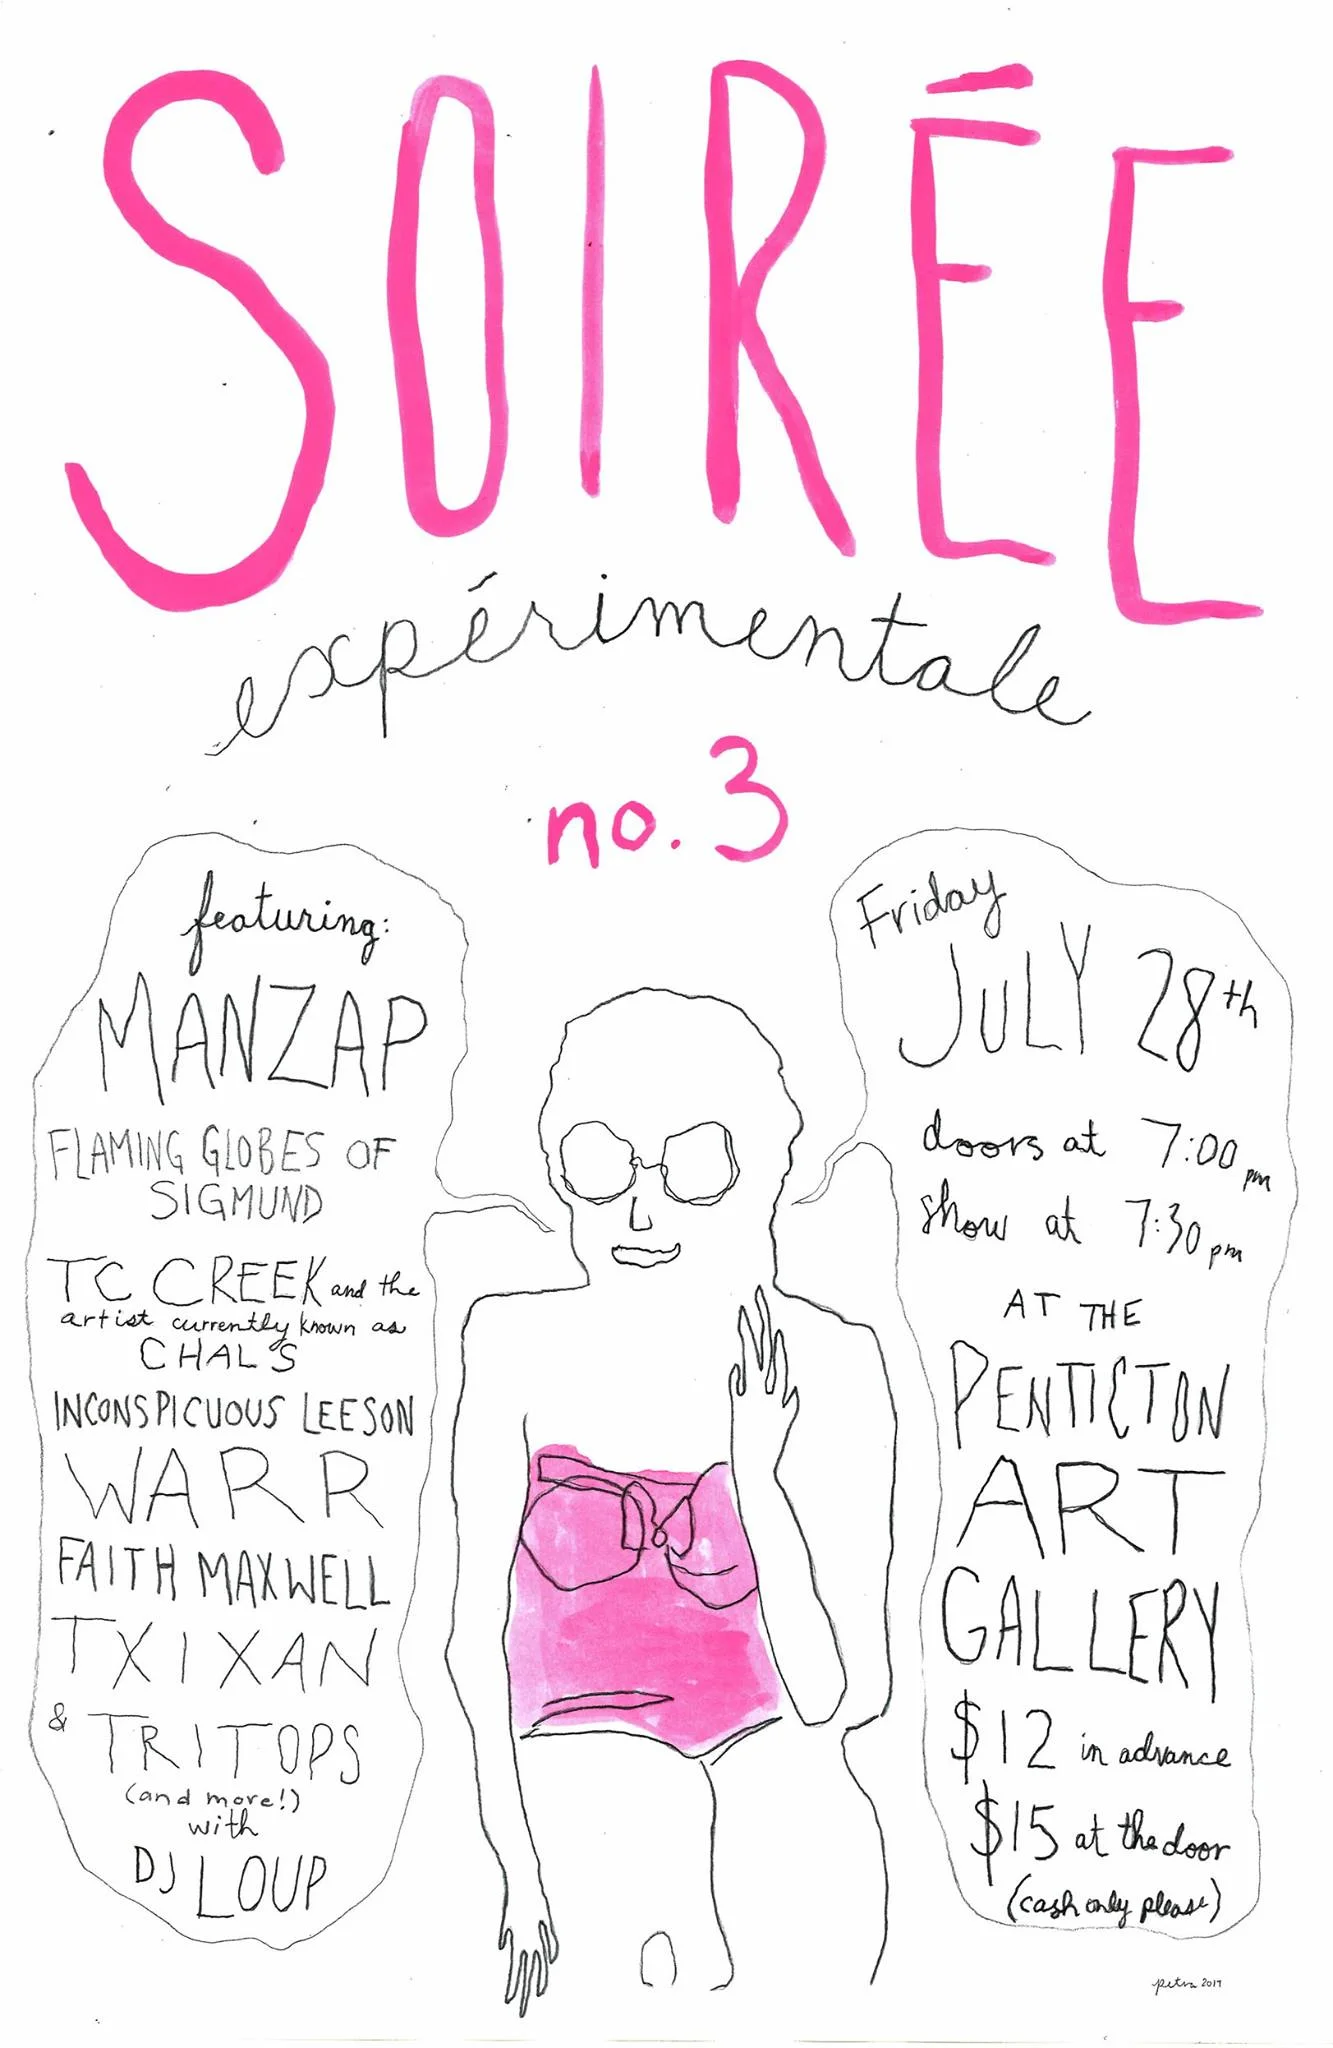 SOIRÉE
expérimentale
no. 3
featuring:
MANZAP
FLAMING GLOBES OF
SIGMUND
TC CREEK and the
artist currently known as
CHAL'S
INCONSPICUOUS LEESON
WARR
FAITH MAXWELL
TXIXAN
& TRITOPS
(and more!)
with
DJ LOUP
Friday
JULY 28th
doors at 7:00 pm
show at 7:30 pm
AT THE
PENTICTON
ART
GALLERY
$12 in advance
$15 at the door
(cash only please)
petra 2017